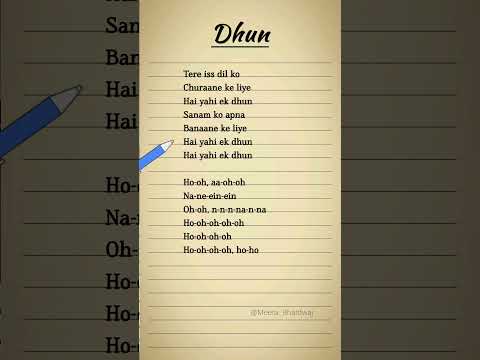 Dhun
Tere iss dil ko
Churaane ke liye
Hai yahi ek dhun
Sanam ko apna
Banaane ke liye
Hai yahi ek dhun
Hai yahi ek dhun
Ho-oh, aa-oh-oh
Na-ne-ein-ein
Oh-oh, n-n-n-na-n-na
Ho-oh-oh-oh-oh
Ho-oh-oh-oh
Ho-oh-oh-oh, ho-ho
@Meera_Bhardwaj
Sanam
Ban
Hai
Hai
Ho-o
Na-n
Oh-o
Ho-o
Ho-o
Ho-o